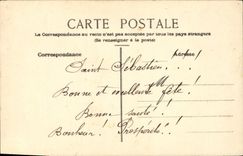 CARTE POSTALE
La Correspondance au verso n'est pas acceptée par tous les pays étrangers
(Se renseigner à la poste)
Correspondance
Saint Sébastien...
Bonne et meilleure Fête!
Bonne santé!
Bonheur! Prospérité!